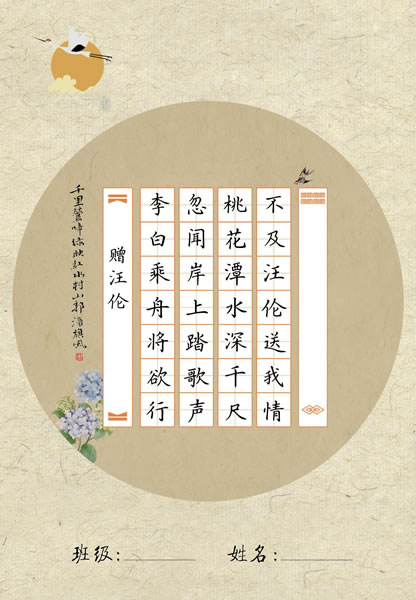 千里鶯啼綠映紅水村山郭酒旗風
赠汪伦
李白乘舟将欲行
忽闻岸上踏歌声
桃花潭水深千尺
不及汪伦送我情
班级:
姓名: